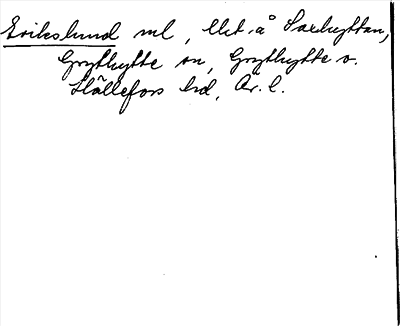 Erikslund ml, Ukt å Saxhyttan,
Grythytte sn, Grythytte o.
Hällefors hd, Ör. l.